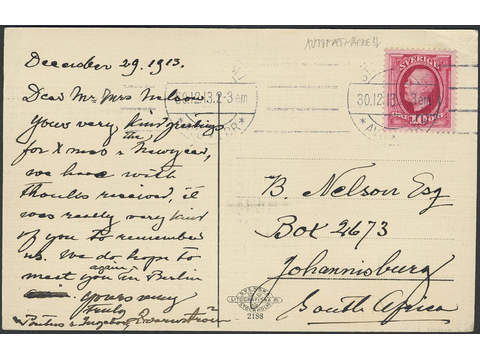 AUTOMATMÄRKE
December 29. 1913.
Dear Mr Mrs Nelson
Your very kind greetings
for Xmas & Newyear,
the
we have with
thanks received, it
was really very kind
of you to remember
us. We do hope to
again
meet you in Berlin
yours very
truly
Pontus & Ingeborg
30.12.13.2-3 em
* AVG
30.12.13.2-3 em
* AVG
SVERIGE
10
B. Nelson Esq
Box 2673
Johannisburg
South Africa
2188